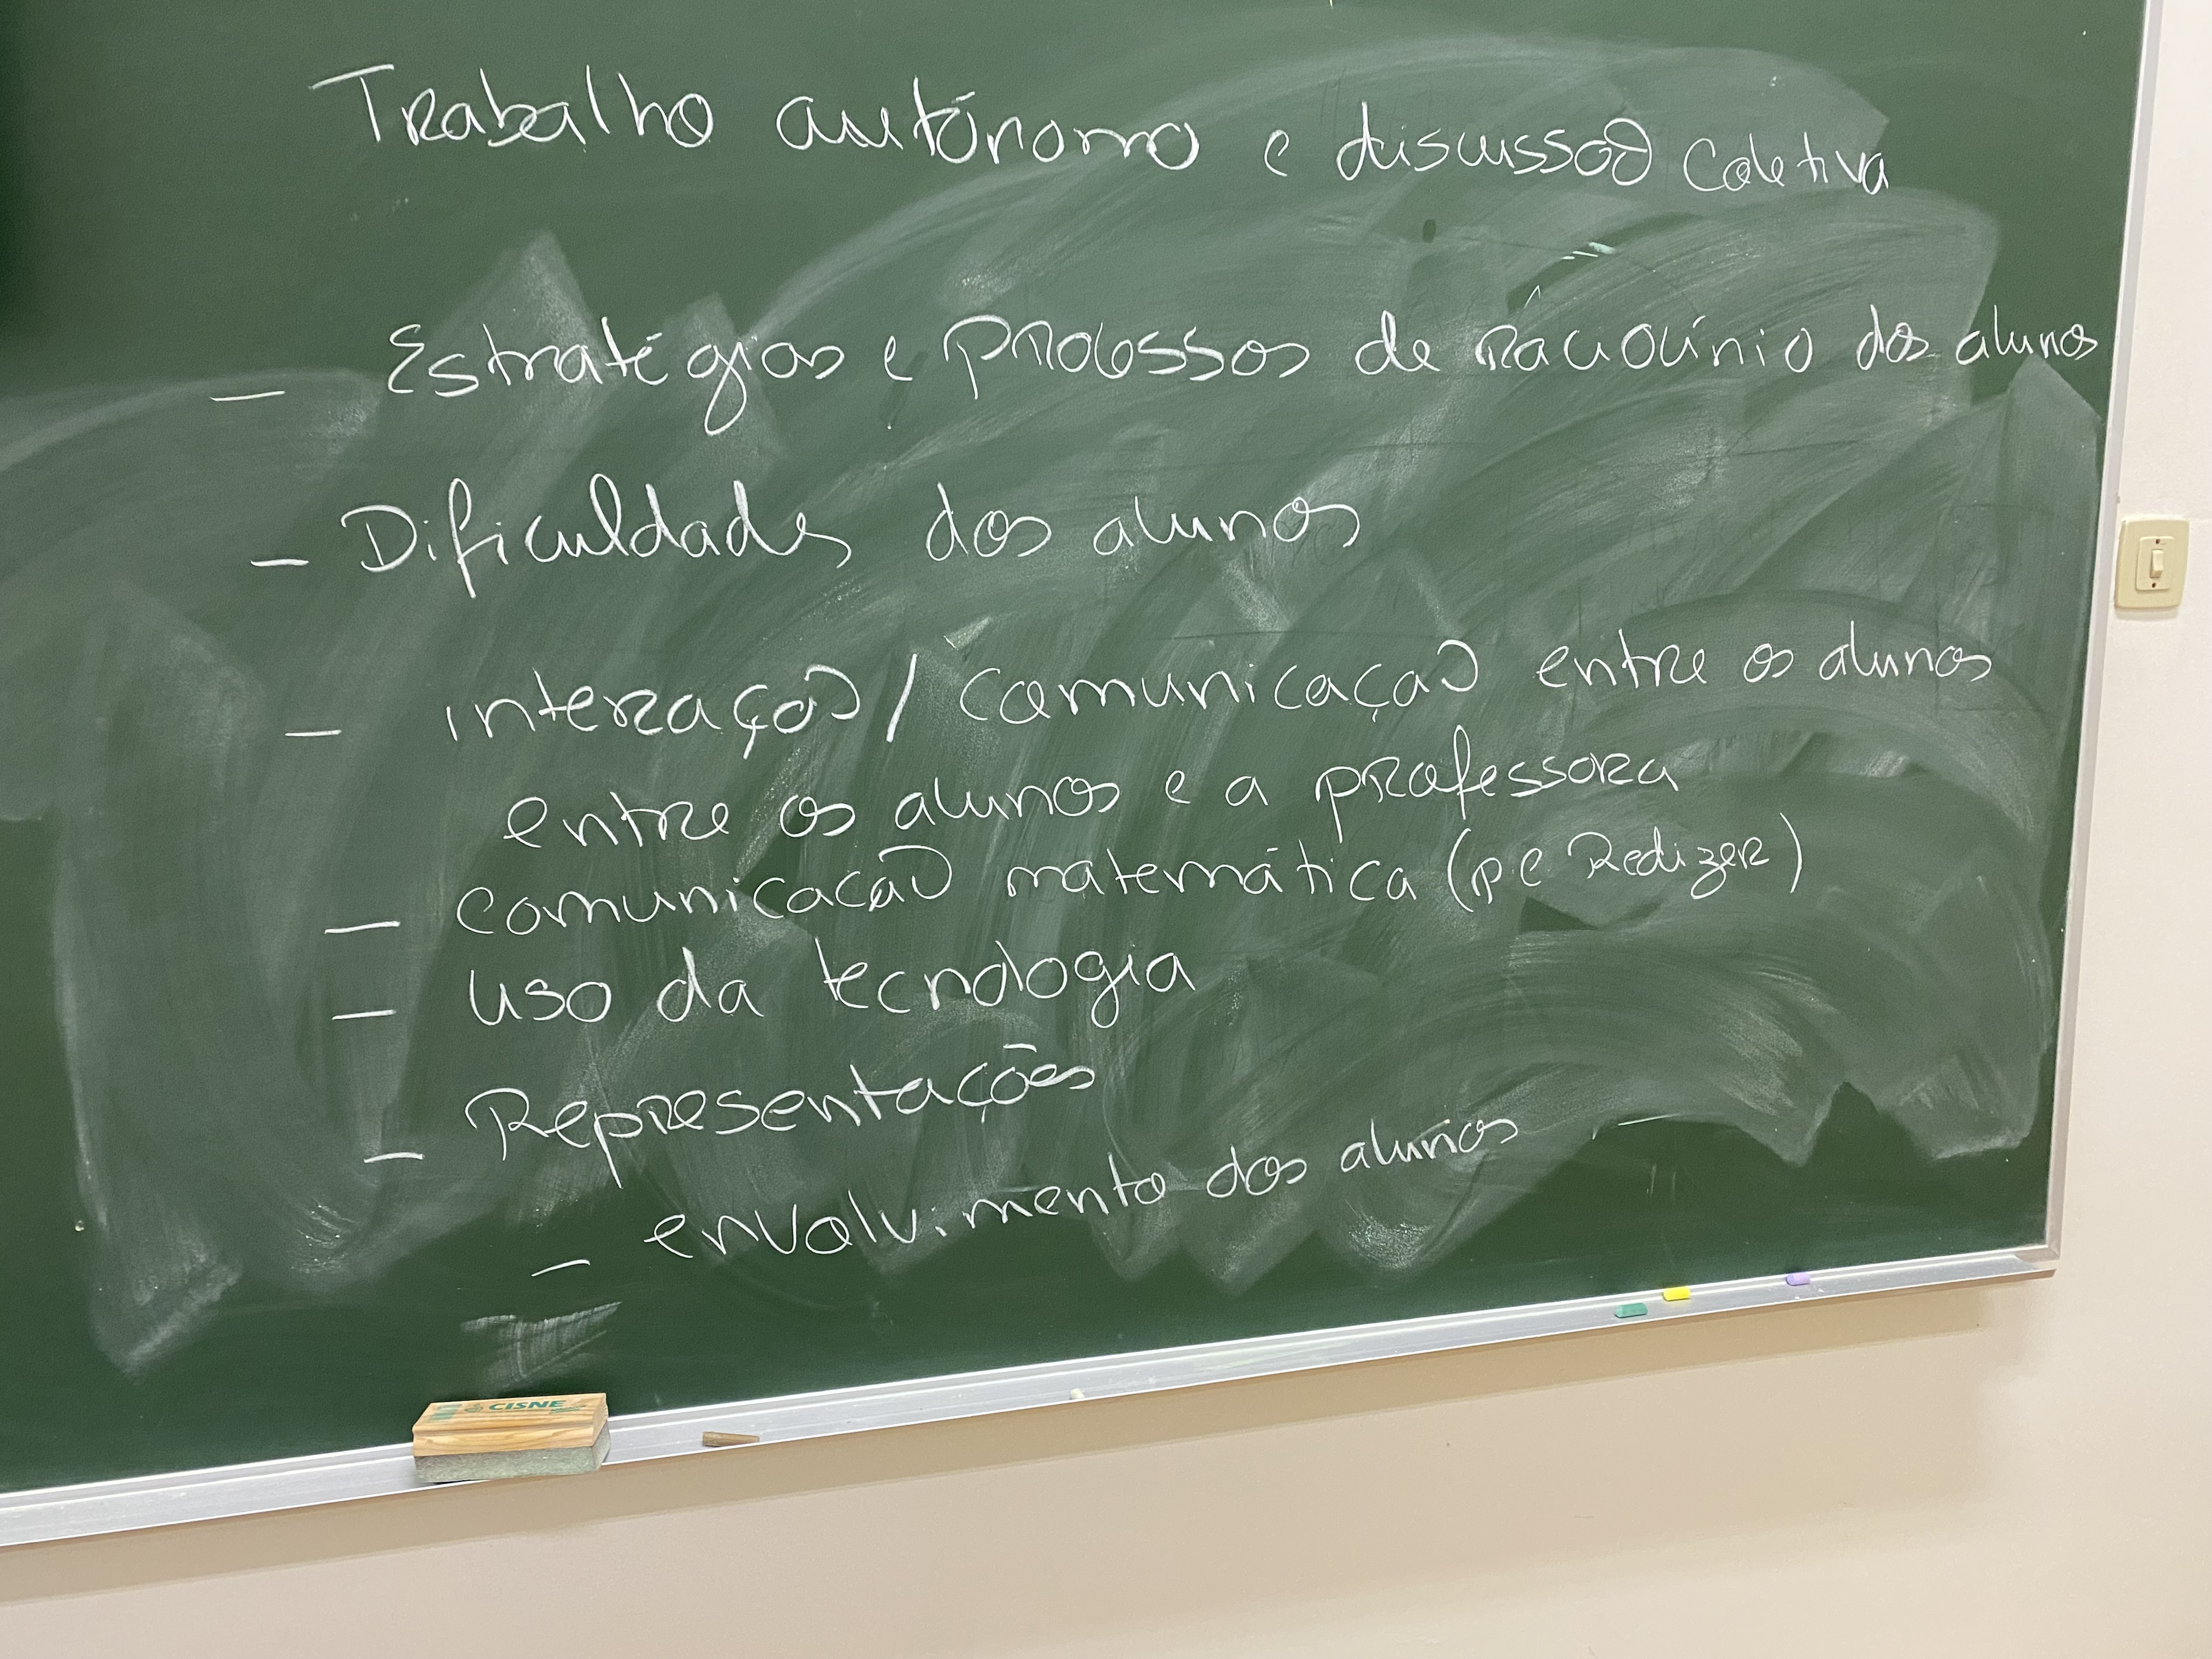 Trabalho autónomo e discussão coletiva
- Estratégias e processos de raciocínio dos alunos
- Dificuldades dos alunos
- interação / comunicação entre os alunos
entre os alunos e a professora
- comunicação matemática (pe Redizer)
- uso da tecnologia
- Representações
- envolvimento dos alunos
CISNE